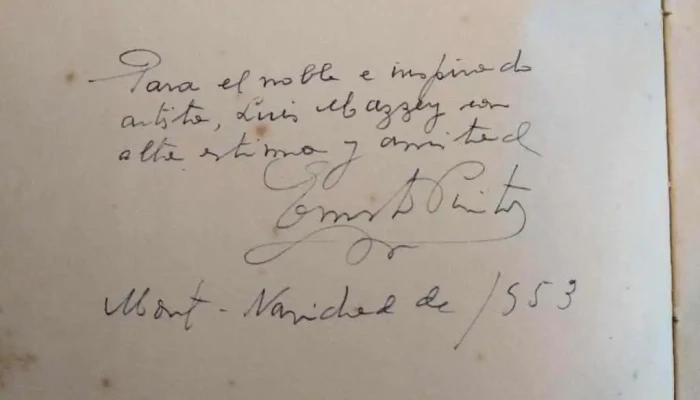 Para el noble e inspirado
artista, Luis Mazzey con
alta estima y amistad
Ernesto Pinto
Mont - Navidad de 1953